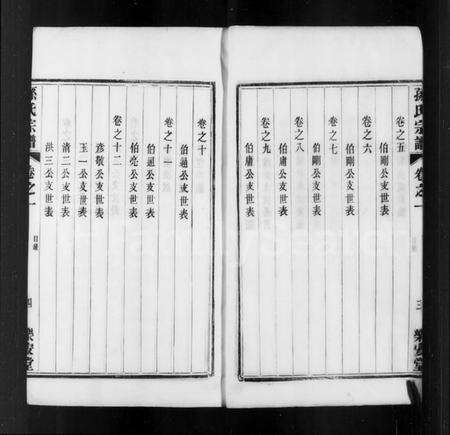 孫氏宗譜
卷之一
三
樂安堂
卷之五
伯剛公支世表
卷之六
伯剛公支世表
卷之七
伯剛公支世表
卷之八
伯庸公支世表
卷之九
伯庸公支世表
卷之十
伯通公支世表
卷之十一
伯通公支世表
伯亮公支世表
卷之十二
彥敬公支世表
玉一公支世表
清二公支世表
洪三公支世表
孫氏宗譜
卷之一
目錄
四
樂安堂